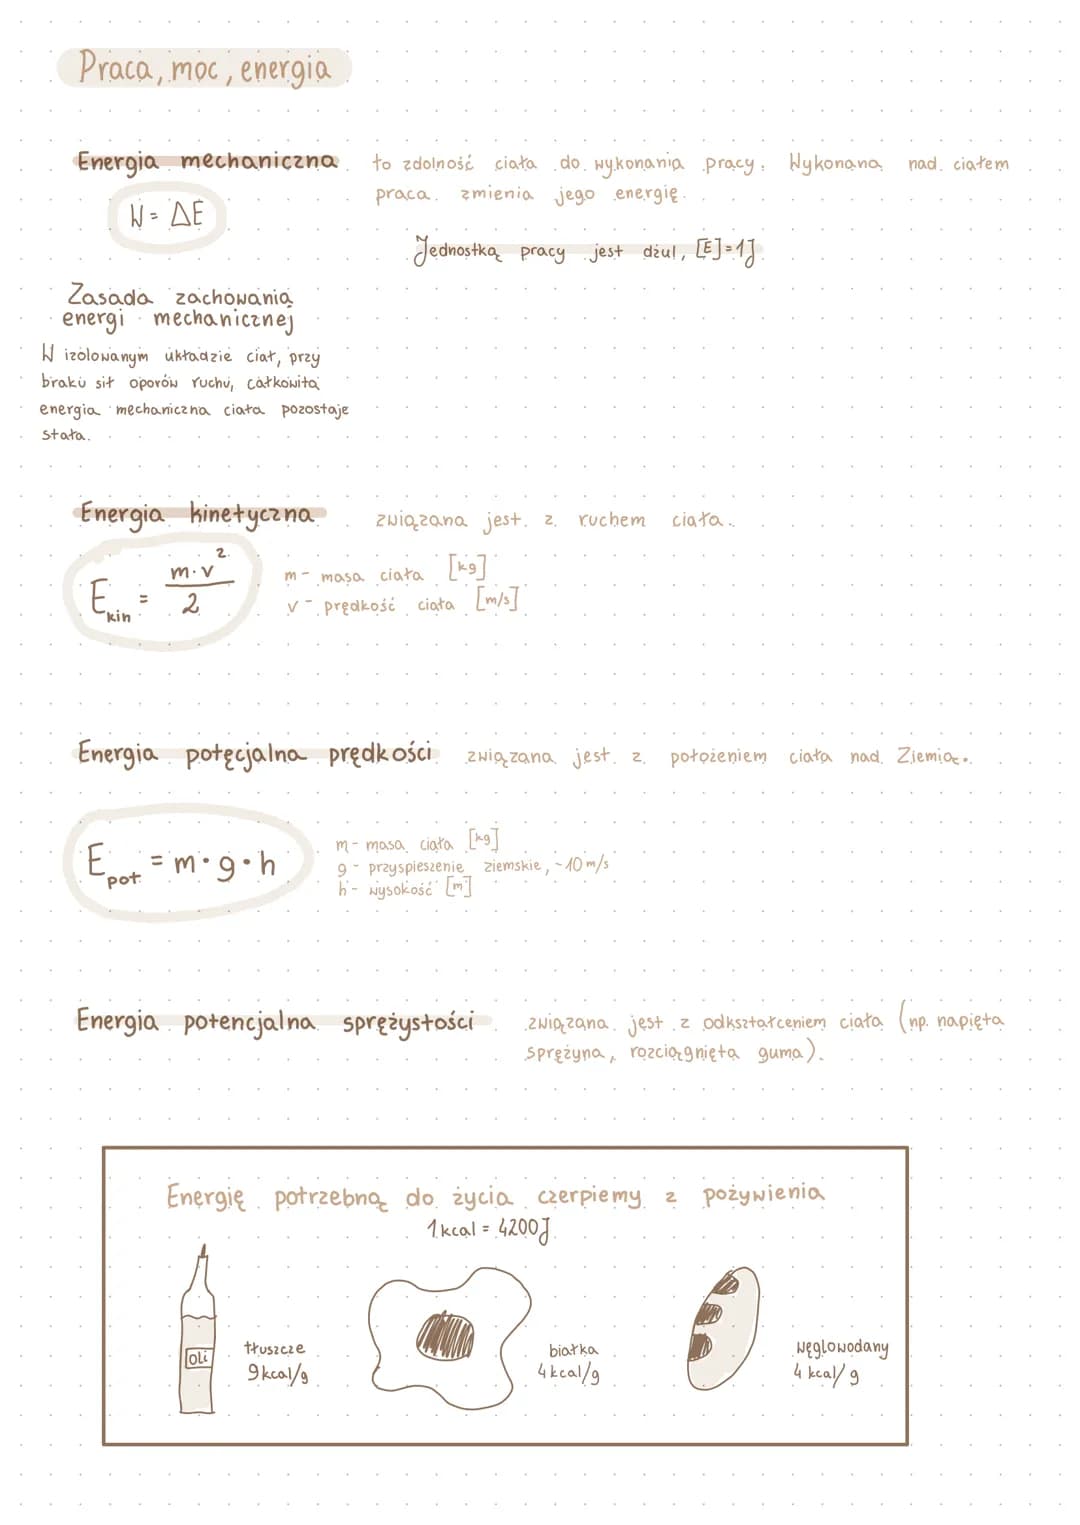 Praca, moc, energia
Energia mechaniczna to zdolność ciała do wykonania pracy. Wykonana nad ciałem
praca zmienia jego energię.
W = ΔE
Jednostką pracy jest dżul, [E]=1J
Zasada zachowania
energi mechanicznej
W izolowanym układzie ciał, przy
braku sił oporów ruchu, całkowita
energia mechaniczna ciała pozostaje
stała.
Energia kinetyczna związana jest z ruchem ciała.
E_kin = m·v²/2
m - masa ciała [kg]
v - prędkość ciała [m/s]
Energia potęcjalna prędkości związana jest z położeniem ciała nad Ziemią.
E_pot = m·g·h
m - masa ciała [kg]
g - przyspieszenie ziemskie, ~10 m/s
h - wysokość [m]
Energia potencjalna sprężystości związana jest z odkształceniem ciała (np. napięta
sprężyna, rozciągnięta guma).
Energię potrzebną do życia czerpiemy z pożywienia
1 kcal = 4200J
Oli
tłuszcze
9kcal/g
białka
4kcal/g
węglowodany
4 kcal/g